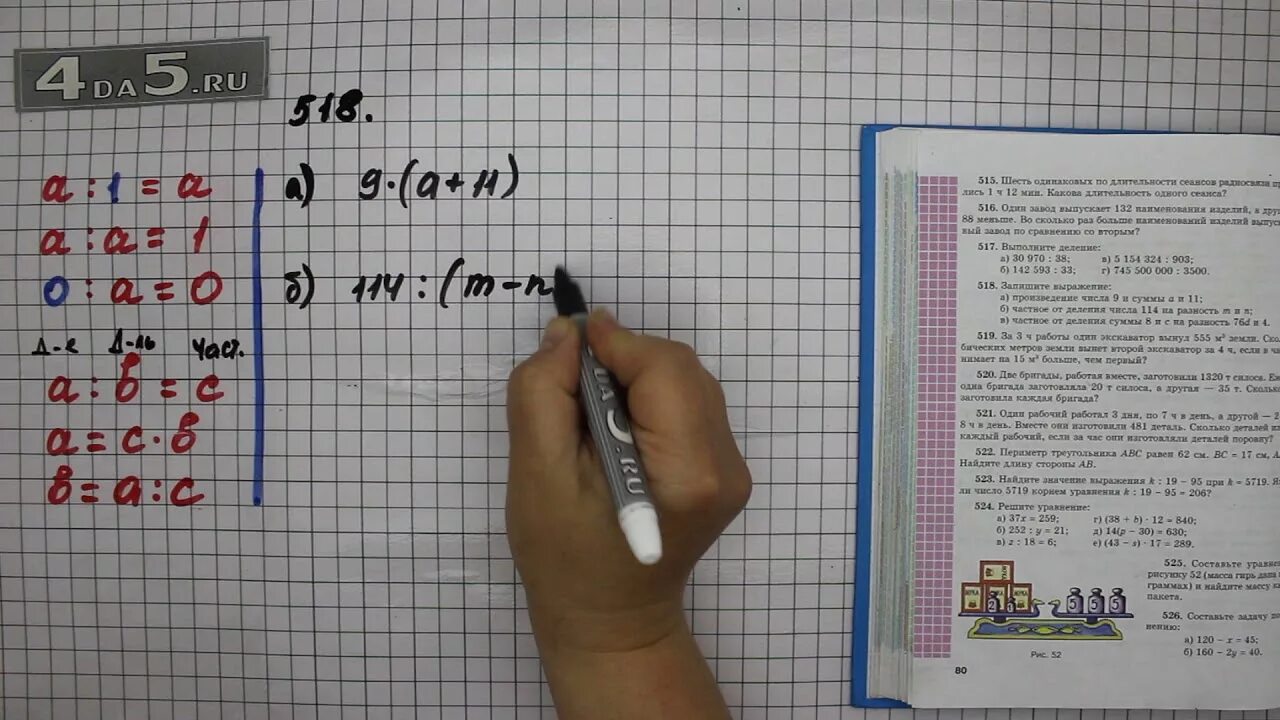 4DA5.RU
518.
a : 1 = a
a : a = 1
0 : a = 0
Д-е Д-ль Част.
a : в = c
a = c · в
в = a : c
а) 9·(a+11)
б) 114 : (m-n
DA5.RU
515. Шесть одинаковых по длительности сеансов радиосвязи
лись 1 ч 12 мин. Какова длительность одного сеанса?
516. Один завод выпускает 132 наименования изделий, а
88 меньше. Во сколько раз больше наименований изделий
вый завод по сравнению со вторым?
517. Выполните деление:
а) 30 970 : 38; в) 5 154 324 : 903;
б) 142 593 : 33; г) 745 500 000 : 3500.
518. Запишите выражение:
а) произведение числа 9 и суммы a и 11;
б) частное от деления числа 114 на разность m и n;
в) частное от деления суммы 8 и c на разность 76d и 4.
519. За 3 ч работы один экскаватор вынул 555 м³ земли.
бических метров земли вынет второй экскаватор за 4 ч, если в
нимает на 15 м³ больше, чем первый?
520. Две бригады, работая вместе, заготовили 1320 т силоса.
одна бригада заготовляла 20 т силоса, а другая — 35 т.
заготовила каждая бригада?
521. Один рабочий работал 3 дня, по 7 ч в день, а другой —
8 ч в день. Вместе они изготовили 481 деталь. Сколько деталей
каждый рабочий, если за час они изготовляли деталей поровну?
522. Периметр треугольника ABC равен 62 см. BC = 17 см,
Найдите длину стороны AB.
523. Найдите значение выражения k : 19 − 95 при k = 5719.
ли число 5719 корнем уравнения k : 19 − 95 = 206?
524. Решите уравнение:
а) 37x = 259; г) (38 + b) · 12 = 840;
б) 252 : y = 21; д) 14(p − 30) = 630;
в) z : 18 = 6; е) (43 − s) · 17 = 289.
525. Составьте
рисунку 52 (масса гирь дана
граммах) и найдите массу
пакета.
526. Составьте задачу
нению:
а) 120 − x = 45;
б) 160 − 2y = 40.
МУКА
МУКА МУКА
5 5 5
Рис. 52
80